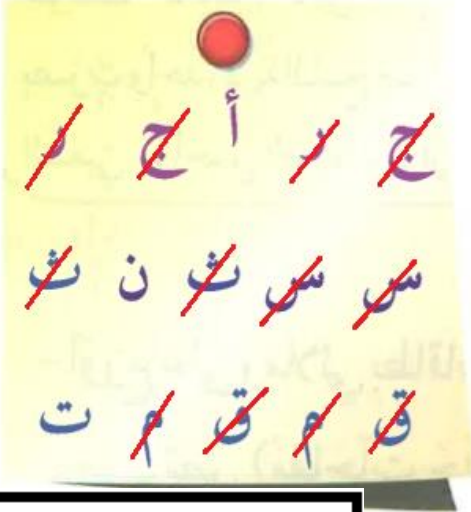 ج ر أ ج ر
س س ث ن ث
ق م ق م ت